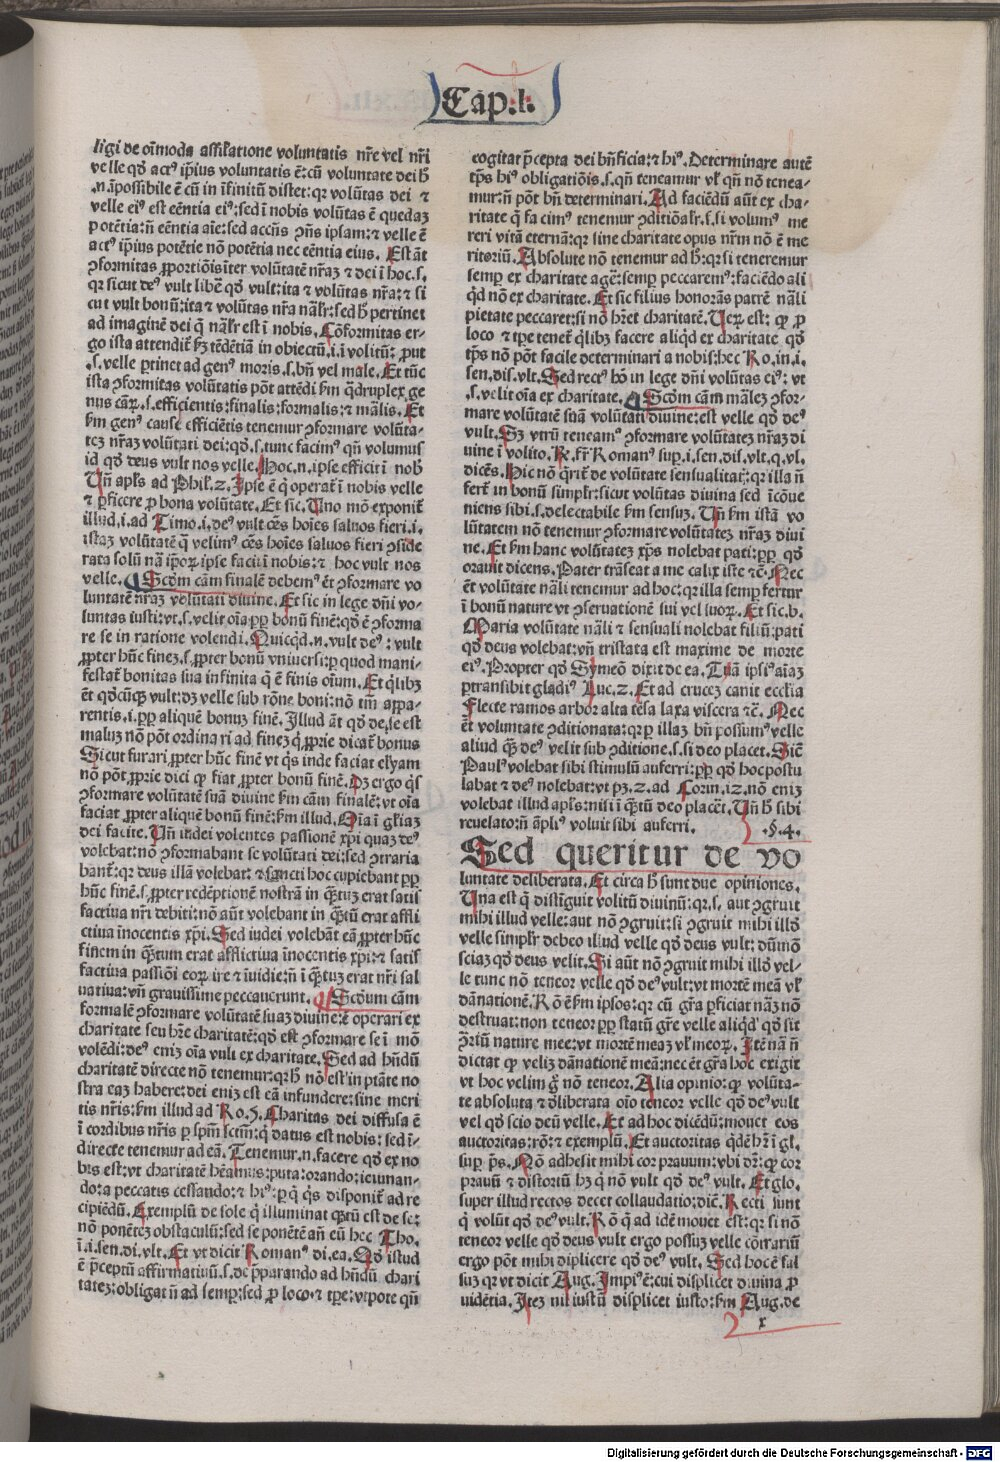 Cap.I.
ligi de oı̄moda assil̄atione voluntatis nr̄e vel nr̄i
velle qḋ actꝰ ip̄ius voluntatis ē: cū voluntate dei h̄
.n. īpossibile ē cū in īfinitū distet: qꝛ volūtas dei ⁊
velle eiꝰ est eēntia eiꝰ: sed ī nobis volūtas ē quedaꝫ
potētia: n̄ eēntia aīe: sed accn̄s ꝯn̄s ipsam: ⁊ velle ē
actꝰ ip̄ius potētie nō potētia nec eēntia eius. Est āt
ꝯformitas ꝓportiōis īter volūtatē nr̄aꝫ ⁊ dei ī hoc .s.
qꝛ sicut deꝰ vult libē qḋ vult: ita ⁊ volūtas nr̄a: ⁊ si
cut vult bonū: ita ⁊ volūtas nr̄a nāl̄r: sed h̄ pertinet
ad imaginē dei q̄ nāl̄r est ī nobis. Cōformitas er-
go ista attendit̄ ẜm tēdētiā in obiectū .i. ī volitū: ꝓut
.s. velle ꝑtinet ad genꝰ moris .s. bn̄ vel male. Et tūc
ista ꝯformitas volūtatis pōt attēdi ẜm q̄druplex ge
nus cāꝝ .s. efficientis: finalis: formalis: ⁊ māl̄is. Et
ẜm genꝰ cause efficiētis tenemur ꝯformare volūta-
teꝫ nr̄aꝫ volūtati dei: qḋ .s. tunc facimꝰ qn̄ volumus
id qḋ deus vult nos velle. Hoc .n. ipse efficit ī nob̄
Un̄ apl̄s ad Phil̄. 2. Ipse ē q̄ operat̄ ī nobis velle
⁊ ꝑficere ꝓ bona volūtate. Et sic. Uno mō exponit̄
illud .i. ad Timo. i. deꝰ vult oēs hoīes saluos fieri .i.
istaꝫ volūtatē q̄ velimꝰ oēs hoīes saluos fieri ꝯside
rata solū nā ip̄oꝝ ipse facit ī nobis: ⁊ hoc vult nos
velle. Scḋm cām finalē debemꝰ ēt ꝯformare vo
luntatē nr̄aꝫ voluntati diuine. Et sic in lege dn̄i vo-
luntas iusti: vt .s. velit oīa ꝓp bonū finē: qḋ ē ꝯforma
re se in ratione volendi. Quicqd .n. vult deꝰ: vult
ꝓpter hūc fineꝫ .s. ꝓpter bonū vniuersi: ꝑ quod mani-
festat̄ bonitas sua infinita q̄ ē finis oīum. Et q̄libꝫ
ēt qḋcūqꝫ vult: dꝫ velle sub rōne boni: nō tm̄ appa-
rentis .i. ꝓp aliquē bonuꝫ finē. Illud āt qḋ de se est
maluꝫ nō pōt ordinari ad fineꝫ q̄ ꝓprie dicat̄ bonus
Sicut furari ꝓpter hūc finē vt q̄s inde faciat elyam
nō pōt ꝓprie dici qꝙ fiat ꝓpter bonū finē. Dꝫ ergo q̄s
ꝯformare volūtatē suā diuine ẜm cām finalē: vt oīa
faciat ꝓpter aliquē bonū finē: ẜm illud. Oīa ī gl̄iaꝫ
dei facite. Un̄ iudei volentes passionē xp̄i quaꝫ deꝰ
volebat: nō ꝯformabant se volūtati dei: sed ꝯtraria
bant̄: qꝛ deus illā volebat: ⁊ sancti hoc cupiebant ꝓp
hūc finē .s. ꝓpter redēptionē nostrā in q̄tuꝫ erat satis
factiua nr̄i debiti: nō aūt volebant in q̄tū erat affli
ctiua īnocentis xp̄i. Sed iudei volebāt eā ꝓpter hūc
finem in q̄tum erat afflictiua īnocentis xp̄i: ⁊ satis
factiua passiōi eoꝝ ire ⁊ īuidie: n̄ ī q̄tuꝫ erat nr̄i sal
uatiua: vn̄ grauissime peccauerunt. Scḋum cām
formalē ꝯformare volūtatē suaꝫ diuine: ē operari ex
charitate seu hr̄e charitatē: qḋ est ꝯformare se ī mō
volēdi: deꝰ eniꝫ oīa vult ex charitate. Sed ad hn̄dū
charitatē directe nō tenemur: qꝛ h̄ nō est in ptāte no
stra eaꝫ habere: dei eniꝫ est eā infundere: sine meri
tis nr̄is: ẜm illud ad Ro. 5. Charitas dei diffusa ē
ī cordibus nr̄is ꝑ spm̄ sctm̄: q̄ datus est nobis: sed ī-
directe tenemur ad eā. Tenemur .n. facere qḋ ex no
bis est: vt charitatē hēamus: puta: orando: ieiunan-
do: a peccatis cessando: ⁊ hiꝰ: ꝑ q̄ q̄s disponit̄ ad re
cipiēdū. Exemplū de sole q̄ illuminat q̄tū est de se:
nō ponēteꝫ obstaculū: sed se ponētē an̄ eū hec Tho.
ī .i. sen. di. vlt. Et vt dicit Romanꝰ di. ea. Qḋ istud
ē p̄ceptū affirmatiuū .s. de p̄parando ad hn̄dū chari
tateꝫ: obligat n̄ ad semꝑ: sed ꝓ loco ⁊ tp̄e: vtpote qn̄
cogitat p̄cepta dei bn̄ficia: ⁊ hiꝰ. Determinare autē
tp̄s hiꝰ obligatiōis .s. qn̄ teneamur vl̄ qn̄ nō tenea-
mur: n̄ pōt bn̄ determinari. Ad faciēdū aūt ex cha-
ritate q̄ facimꝰ tenemur ꝯditiōal̄r .s. si volumꝰ me
reri vitā eternā: qꝛ sine charitate opus nr̄m nō ē me
ritoriū. Absolute nō tenemur ad h̄: qꝛ si teneremur
semꝑ ex charitate ageē: semꝑ peccaremꝰ: faciēdo ali
q̄d nō ex charitate. Et sic filius honorās patrē nāli
pietate peccaret: si nō hr̄et charitatē. Ueꝝ est: qꝙ ꝓ
loco ⁊ tp̄e tenet̄ q̄libꝫ facere aliqd ex charitate qḋ
tp̄s nō pōt facile determinari a nobis: hec Ro. in .i.
sen. dis. vlt. Sed rectꝰ hō in lege dn̄i volūtas eiꝰ: vt
.s. velit oīa ex charitate. Scḋm cām māleꝫ ꝯfor-
mare voluntatē suā volūtati diuine: est velle qḋ deꝰ
vult. Sꝫ vtrū teneamꝰ ꝯformare volūtateꝫ nr̄aꝫ di
uine ī volito. Rͤ. fr̄ Romanꝰ suꝑ .i. sen. dis. vlt. q. vl.
dicēs. Hic nō q̄rit̄ de volūtate sensualitat̄: qꝛ illa n̄
fert̄ in bonū simpl̄r: sicut volūtas diuina sed ī ꝯue
niens sibi .s. delectabile ẜm sensuꝫ. Un̄ ẜm istā vo
lūtatem nō tenemur ꝯformare volūtateꝫ nr̄aꝫ diui
ne. Et ẜm hanc volūtateꝫ xp̄s nolebat pati: ꝓp qḋ
orauit dicens. Pater trāseat a me calix iste ⁊c̄. Nec
ēt volūtate nāli tenemur ad hoc: qꝛ illa semꝑ fertur
ī bonū nature vt ꝯseruationē sui vel suoꝝ. Et sic .b.
Maria volūtate nāli ⁊ sensuali nolebat filiū: pati
qḋ deus volebat: vn̄ tristata est maxime de morte
eiꝰ. Propter qḋ Symeō dixit de ea. Tuā ipsiꝰ aīaꝫ
ꝑtransibit gladiꝰ Luc. 2. Et ad cruceꝫ canit ecclia
Flecte ramos arbor alta tēsa laxa viscera ⁊c̄. Nec
ēt voluntate ꝯditionata: qꝛ ꝑ illaꝫ bn̄ possumꝰ velle
aliud q̄ꝫ deꝰ velit sub ꝯditione .s. si deo placet. Siē
Paulꝰ volebat sibi stimulū auferri: ꝓp qḋ hoc postu
labat ⁊ deꝰ nolebat: vt pꝫ. 2. ad Corin. 12. nō eniꝫ
volebat illud apl̄s: nisi ī q̄tū deo placeēt. Un̄ h̄ sibi
reuelato: n̄ āpliꝰ voluit sibi auferri. .§.4.
Sed queritur de vo
luntate deliberata. Et circa h̄ sunt due opiniones.
Una est q̄ distīguit volitū diuinū: qꝛ .s. aut ꝯgruit
mihi illud velle: aut nō ꝯgruit: si ꝯgruit mihi illḋ
velle simpl̄r debeo illud velle qḋ deus vult: dūmō
sciaꝫ qḋ deus velit. Si aūt nō ꝯgruit mihi illḋ vel-
le tunc nō teneor velle qḋ deꝰ vult: vt mortē meā vl̄
dānationē. Rō ē ẜm ipsos: qꝛ cū gr̄a ꝑficiat nāꝫ nō
destruat: non teneor ꝓp statū gr̄e velle aliqd qḋ sit
ꝯriū nature mee: vt mortē meaꝫ vl̄ meoꝝ. Itē nā n̄
dictat qꝙ veliꝫ dānationē meā: nec ēt gr̄a hoc exigit
vt hoc velim g̊ nō teneor. Alia opinio: qꝙ volūta-
te absoluta ⁊ dliberata oīo teneor velle qḋ deꝰ vult
vel qḋ scio deū velle. Et ad hoc dicēdū: mouet eos
auctoritas: rō: ⁊ exemplū. Et auctoritas q̄dē hr̄ ī gl̄.
suꝑ ps̄. Nō adhesit mihi cor prauum: vbi dr̄: qꝙ cor
prauū ⁊ distortū hꝫ q̄ nō vult qḋ deꝰ vult. Et glo.
super illud rectos decet collaudatio: diē. Recti sunt
q̄ volūt qḋ deꝰ vult. Rō q̄ ad idē mouet est: qꝛ si nō
teneor velle qḋ deus vult ergo possuꝫ velle cōtrariū
ergo pōt mihi displicere qḋ deꝰ vult. Sed hoc ē fal
suꝫ qꝛ vt dicit Aug. Impiꝰ ē: cui displicet diuina ꝓ
uidētia. Iteꝫ nil iustū displicet iusto: ẜm Aug. de
x
Digitalisierung gefördert durch die Deutsche Forschungsgemeinschaft - DFG